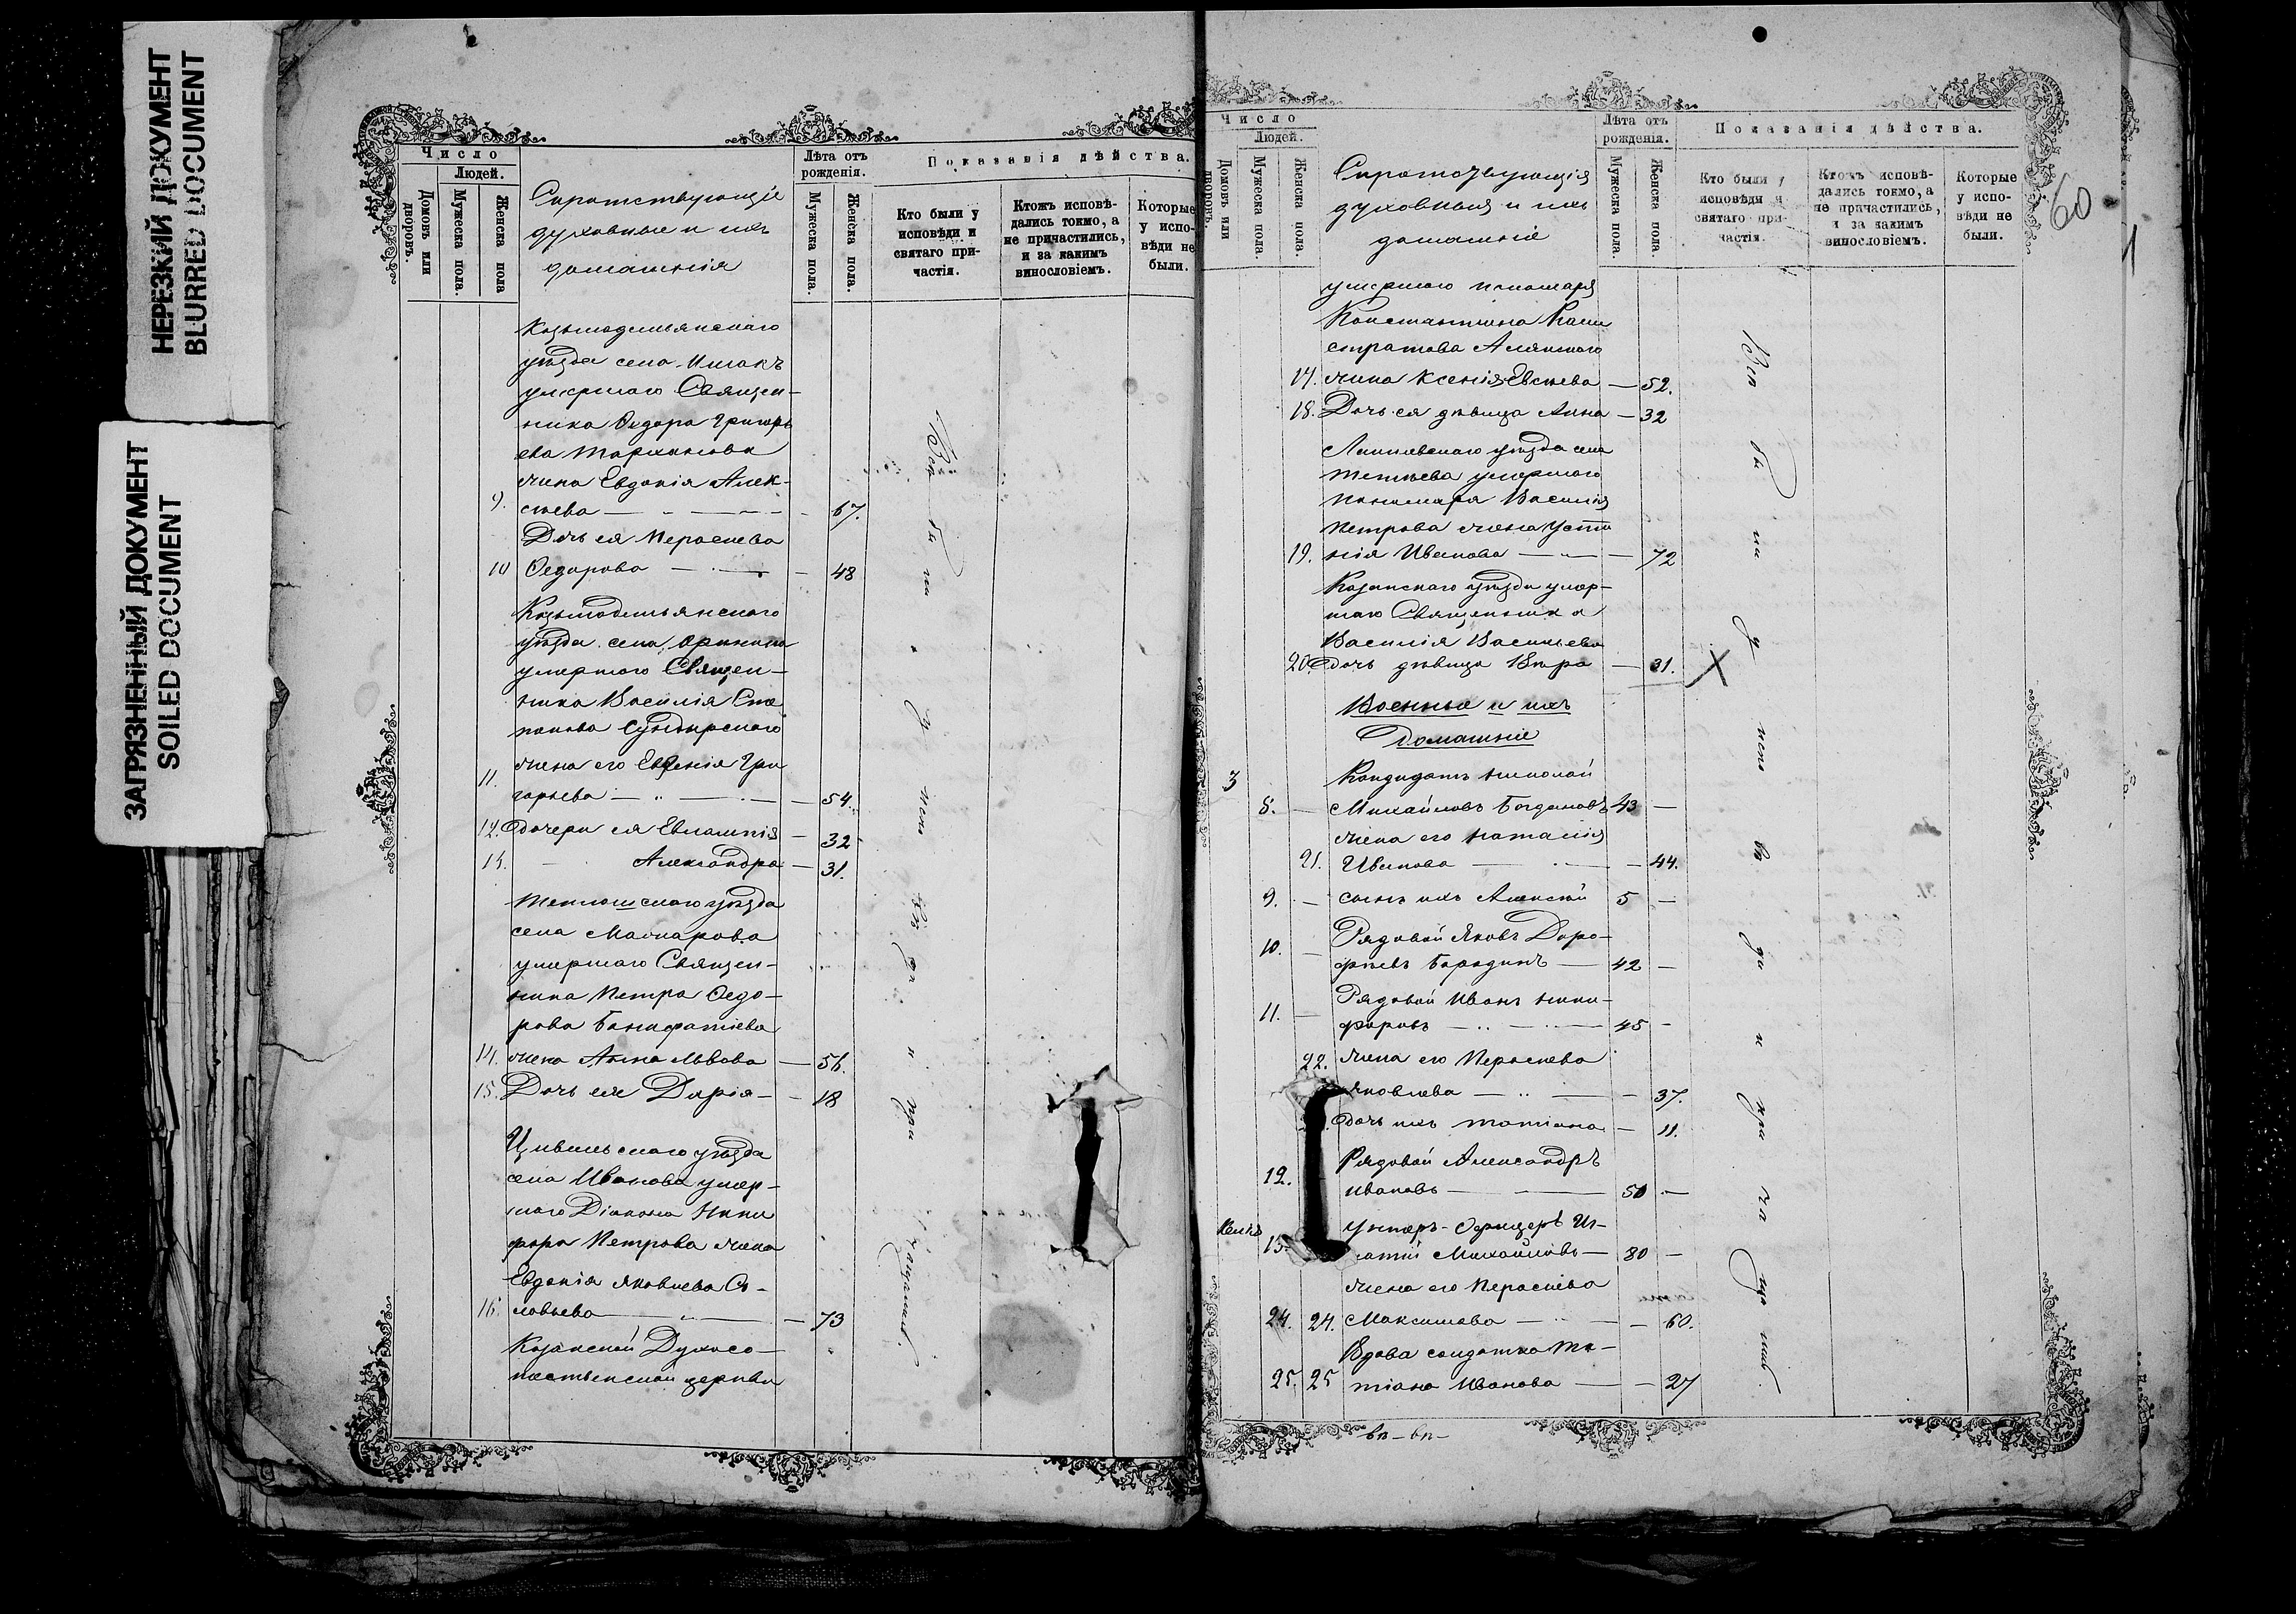 НЕРЕЗКИЙ ДОКУМЕНТ
BLURRED DOCUMENT
ЗАГРЯЗНЕННЫЙ ДОКУМЕНТ
SOILED DOCUMENT
Число
Людей.
Домовъ или дворовъ.
Мужеска пола.
Женска пола
Сиротствующіе
духовные и ихъ
домашнія
Лѣта отъ
рожденія.
Мужеска пола.
Женска пола.
Показанія дѣйства.
Кто были у
исповѣди и
святаго при-
частія.
Ктожъ исповѣ-
дались токмо, а
не причастились,
и за какимъ
винословіемъ.
Которые
у испо-
вѣди не
были.
Козьмодемьянскаго
уѣзда села Ишакъ
умершаго Священ-
ника Ѳедора Григорь
ева
жена Евдокія Алек-
9. сѣева — 67.
Дочь ея Пераскева
10 Ѳедорова — 48
Козьмодемьянскаго
уѣзда села
умершаго Священ-
ника Василія Сте
панова Сундырскаго
жена его Евгенія Гри
11. горьева — 54.
12. дочери ея Евлампія — 32
13. Александра — 31.
Тетюшскаго уѣзда
села
умершаго Священ-
ника Петра Ѳедо-
рова Бонифатіева
14. жена Анна Львова — 56.
15. Дочь ея Дарія — 18
Цивильскаго уѣзда
села Иванова умер-
шаго Діакона Ники
фора Петрова жена
Евдокія Яковлева Со-
16. ловьева — 73
Казанской Духосо-
шественской церкви
Всѣ бы ли у испо вѣ ди и при частил.
Число
Людей.
Домовъ или дворовъ.
Мужеска пола.
Женска пола.
Сиротствующія
духовныя и ихъ
домашніе
Лѣта отъ
рожденія.
Мужеска пола.
Женска пола.
Показанія дѣйства.
Кто были у
исповѣди и
святаго при-
частія.
Ктожъ исповѣ-
дались токмо, а
не причастились,
и за какимъ
винословіемъ.
Которые
у испо-
вѣди не
были.
60
1
умершаго пономаря
Константина
17. жена Ксенія Евсѣева — 52.
18. Дочь ея дѣвица Анна — 32
Лаишевскаго уѣзда села
умершаго
пономаря Василія
Петрова жена Усти
19. нія Иванова — 72
Казанскаго уѣзда умер-
шаго Священника
Василія Васильева
20. дочь дѣвица Вѣра — 31. X
Военные и ихъ
Домашніе
3 Кандидатъ Николай
8. — Михайловъ Богдановъ 43 —
жена его Наталія
21. Иванова — 44.
9. — сынъ ихъ Алексѣй 5 —
Рядовой Яковъ Доро-
10. — фѣевъ Бородинъ — 42 —
Рядовой Иванъ Ники-
11. — форовъ — 45 —
22. жена его Пераскева
Яковлева — 37.
дочь ихъ Татіана — 11.
Рядовой Александръ
12. Ивановъ — 50 —
Унтеръ-Офицеръ Иг-
13. натій Михайловъ — 80 —
жена его Пераскева
24. 24. Максимова — 60.
Вдова солдатка Та-
25. 25 тіана Иванова — 27
Всѣ бы ли у испо вѣ ди и при ча щались.